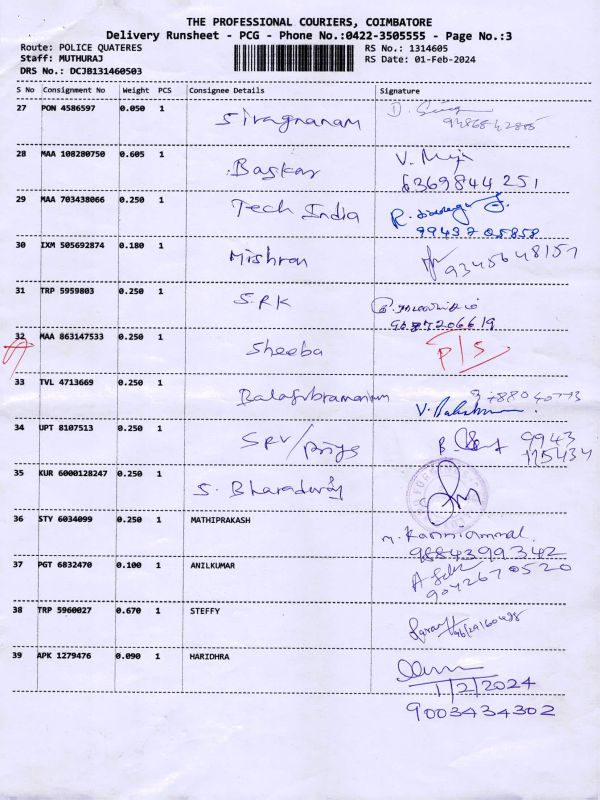 THE PROFESSIONAL COURIERS, COIMBATORE
Delivery Runsheet - PCG - Phone No.:0422-3505555 - Page No.:3
Route: POLICE QUATERES RS No.: 1314605
Staff: MUTHURAJ RS Date: 01-Feb-2024
DRS No.: DCJB131460503
S No Consignment No Weight PCS Consignee Details Signature
27 PON 4586597 0.050 1 Sivagnanam
28 MAA 108280750 0.605 1 Baskar
6369844251
29 MAA 703438066 0.250 1 Tech India
30 IXM 505692874 0.180 1 Mishron 9345648157
31 TRP 5959803 0.250 1 S.R.K
32 MAA 863147533 0.250 1 Sheeba P/S
33 TVL 4713669 0.250 1 Balasubramanium
34 UPT 8107513 0.250 1 SRV/Priya 9943
115434
35 KUR 6000128247 0.250 1 S. Bharadwaj
36 STY 6034099 0.250 1 MATHIPRAKASH
M. Kanniammal
9884399342
37 PGT 6832470 0.100 1 ANILKUMAR
9042670520
38 TRP 5960027 0.670 1 STEFFY
39 APK 1279476 0.090 1 HARIDHRA
1/2/2024
9003434302